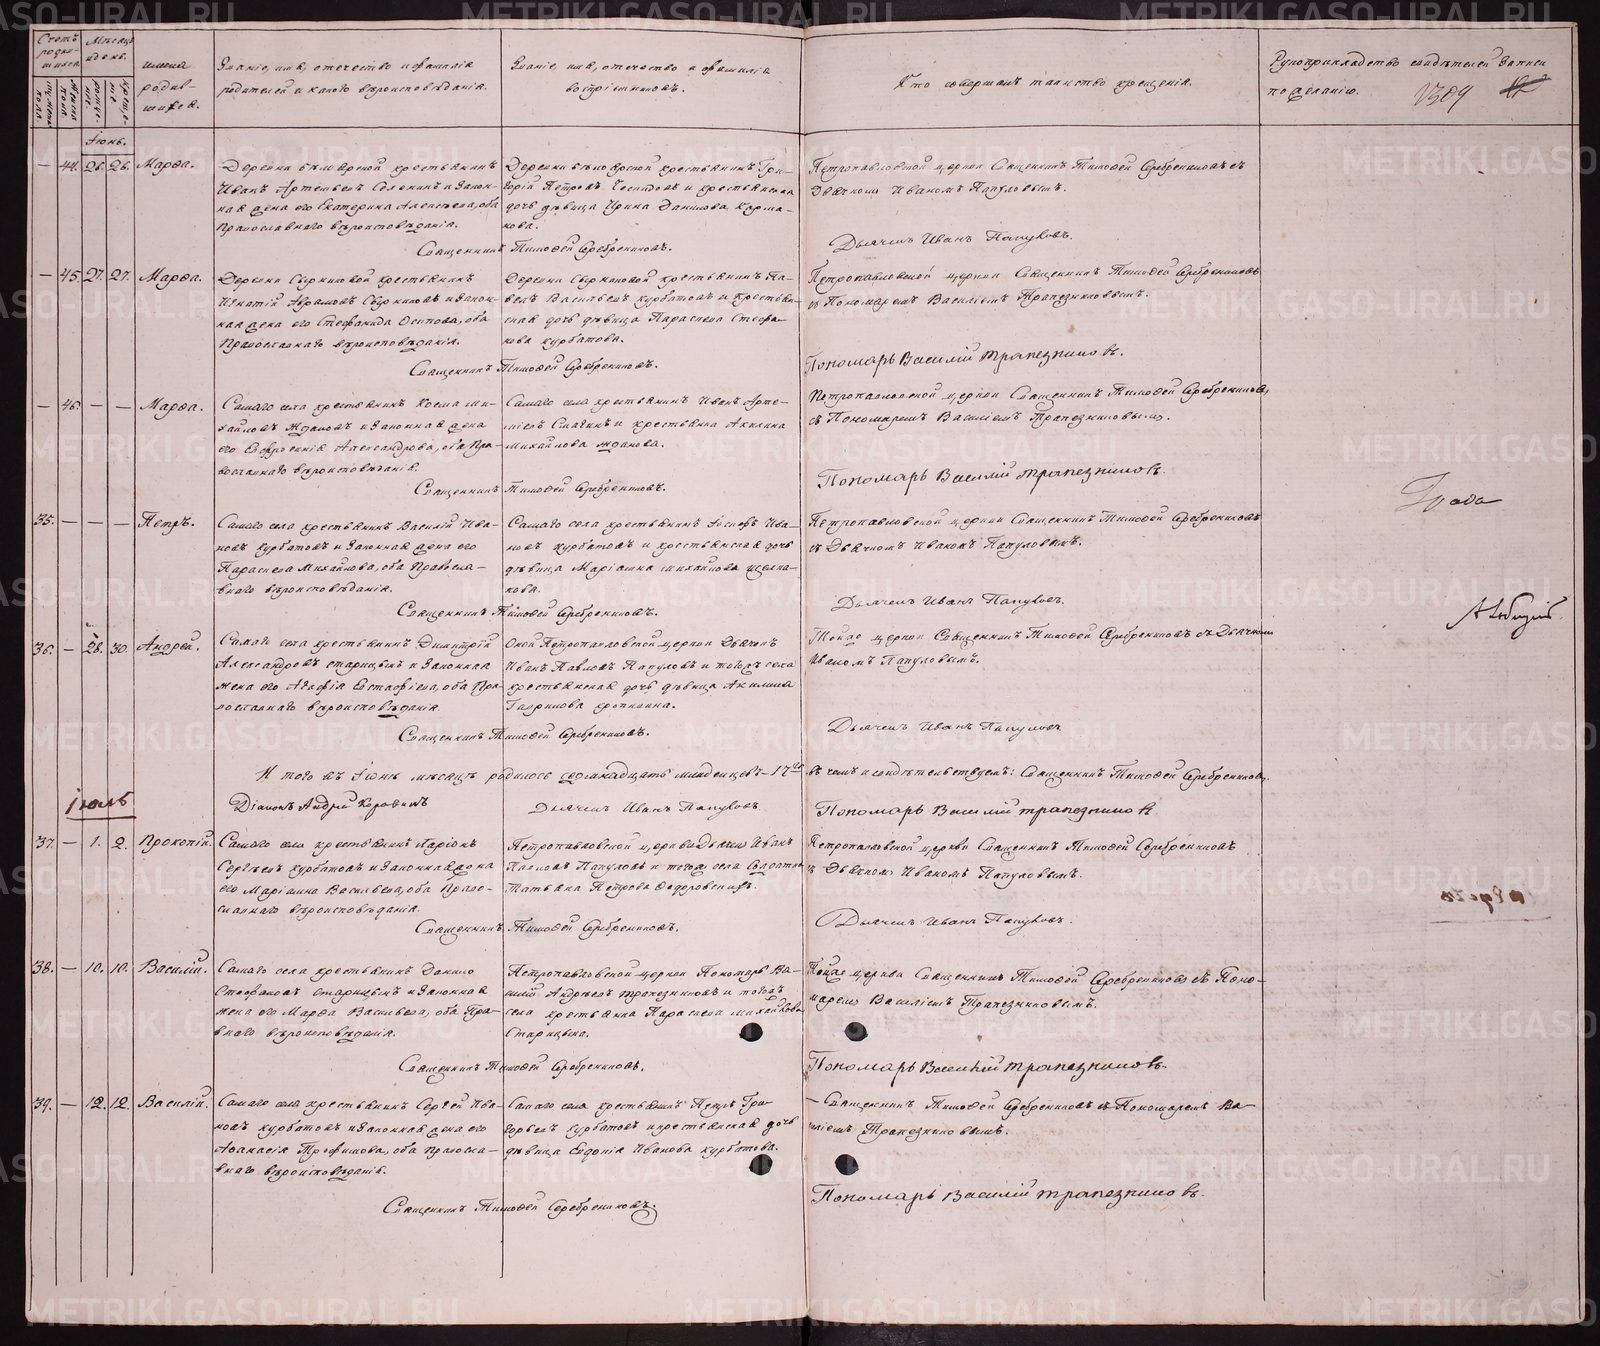 Счетъ родив-шихся.
Мѣсяцъ и день.
имена родив-шихся.
Званіе, имя, отечество и фамилія
родителей и какого вѣроисповѣданія.
Званіе, имя, отечество и фамилія
воспріемниковъ.
Кто совершалъ таинство крещенія.
Рукоприкладство свидѣтелей записи
по желанію.
1309
Іюнь.
— 44. 26. 26. Марѳа.
крестьянинъ
Иванъ Артемьевъ и закон-
ная жена его Екатерина Алексѣева, оба
Православнаго вѣроисповѣданія.
крестьянинъ Гри-
горій Петровъ и крестьянская
дочь дѣвица Ирина Данилова Карма-
кова.
Петропавловской церкви Священникъ Тимоѳей Серебрениковъ съ
Дьячкомъ Иваномъ Папуловымъ.
Священникъ Тимоѳей Серебрениковъ.
Дьячекъ Иванъ Папуловъ.
— 45. 27. 27. Марѳа.
Деревни Сыркиновой крестьянинъ
Игнатій Абрамовъ Сыркиновъ и закон-
ная жена его Стефанида Осипова, оба
Православнаго вѣроисповѣданія.
Деревни Сыркиновой крестьянинъ Па-
велъ Васильевъ Курбатовъ и крестьян-
ская дочь дѣвица Параскева Стефа-
нова Курбатова.
Петропавловской церкви Священникъ Тимоѳей Серебрениковъ
съ Пономаремъ Василіемъ Трапезниковымъ.
Священникъ Тимоѳей Серебрениковъ.
Пономарь Василій Трапезниковъ.
— 46. — — Марѳа.
Самаго села крестьянинъ Косма Ми-
хайловъ Ждановъ и законная жена
его Евфросинія Александрова, оба Пра-
вославнаго вѣроисповѣданія.
Самаго села крестьянинъ Иванъ Арте-
міевъ и крестьянка Акилина
Михайлова Жданова.
Петропавловской церкви Священникъ Тимоѳей Серебрениковъ,
съ Пономаремъ Василіемъ Трапезниковымъ.
Священникъ Тимоѳей Серебрениковъ.
Пономарь Василій Трапезниковъ.
35. — — — Петръ.
Самаго села крестьянинъ Василій Ива-
новъ Курбатовъ и законная жена его
Параскева Михайлова, оба Правосла-
внаго вѣроисповѣданія.
Самаго села крестьянинъ Іосифъ Ива-
новъ Курбатовъ и крестьянская дочь
дѣвица Маріамна Михайлова Щелка-
кова.
Петропавловской церкви Священникъ Тимоѳей Серебрениковъ
съ Дьячкомъ Иваномъ Папуловымъ.
Священникъ Тимоѳей Серебрениковъ.
Дьячекъ Иванъ Папуловъ.
36. — 28. 30. Андрей.
Самаго села крестьянинъ Димитрій
Александровъ Старицынъ и законная
жена его Агафія Евстафіева, оба Пра-
вославнаго вѣроисповѣданія.
Оной Петропавловской церкви Дьячекъ
Иванъ Павловъ Папуловъ и того жъ села
крестьянская дочь дѣвица Акилина
Гаврилова
Тойже церкви Священникъ Тимоѳей Серебрениковъ съ Дьячкомъ
Иваномъ Папуловымъ.
Священникъ Тимоѳей Серебрениковъ.
Дьячекъ Иванъ Папуловъ
И того въ Іюнѣ мѣсяцѣ родилось семнадцать младенцевъ — 17. въ чемъ и свидѣтельствуемъ: Священникъ Тимоѳей Серебрениковъ.
Діаконъ Андрей Коровинъ
Дьячекъ Иванъ Папуловъ
Пономарь Василій Трапезниковъ
Іюль
37. — 1. 2. Прокопій.
Самаго села крестьянинъ Ларіонъ
Сергѣевъ Курбатовъ и законная жена
его Маріамна Васильева, оба Право-
славнаго вѣроисповѣданія.
Петропавловской церкви Дьячекъ Иванъ
Павловъ Папуловъ и тогоже села
Татьяна Петрова Ѳедоровскихъ.
Петропавловской церкви Священникъ Тимоѳей Серебрениковъ
съ Дьячкомъ Иваномъ Папуловымъ.
Священникъ Тимоѳей Серебрениковъ.
Дьячекъ Иванъ Папуловъ.
38. — 10. 10. Василій.
Самаго села крестьянинъ Данило
Стефановъ Старицынъ и законная
жена его Марѳа Васильева, оба Пра-
внаго вѣроисповѣданія.
Петропавловской церкви Пономарь Ва-
силій Андреевъ Трапезниковъ и тогожъ
села крестьянка Параскева Михайлова
Старицына.
Тойже церкви Священникъ Тимоѳей Серебрениковъ съ Поно-
маремъ Василіемъ Трапезниковымъ.
Священникъ Тимоѳей Серебрениковъ.
Пономарь Василій Трапезниковъ.
39. — 12. 12. Василій.
Самаго села крестьянинъ Сергѣй Ива-
новъ Курбатовъ и законная жена его
Аѳанасія Трофимова, оба Правосла-
внаго вѣроисповѣданія.
Самаго села крестьянинъ Петръ Гри-
горьевъ Курбатовъ и крестьянская дочь
дѣвица Евдокія Иванова Курбатова.
— Священникъ Тимоѳей Серебрениковъ съ Пономаремъ Ва-
силіемъ Трапезниковымъ.
Священникъ Тимоѳей Серебрениковъ.
Пономарь Василій Трапезниковъ.
METRIKI.GASO-URAL.RU